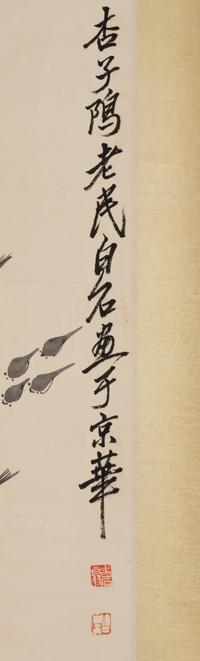 杏子隖老民白石画于京華